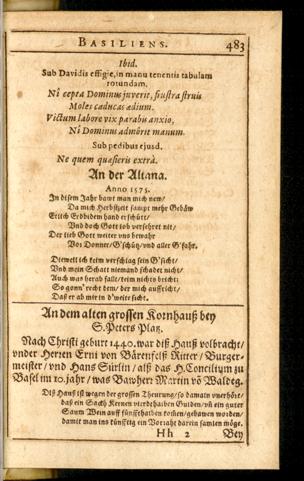 BASILIENS. 483
Ibid.
Sub Davidis effigie, in manu tenentis tabulam
rotundam.
Ni cepta Dominus juverit, frustra struis
Moles caducas ædium.
Victum labore vix parabis anxio,
Ni Dominus admôrit manum.
Sub pedibus ejusd.
Ne quem quæsieris extrà.
An der Altana.
Anno 1575.
In disem Jahr bawt man mich new/
Da mich Herbstzeit sampt mehr Gebäw
Etlich Erdbidem hand erschütt/
Vnd doch Gott lob versehret nit/
Der lieb Gott weiter vns bewahr
Vor Donner/G'schütz/vnd aller G'fahr.
Dieweil ich keim verschlag sein G'sicht/
Vnd mein Schatt niemand schadet nicht/
Auch was herab falle/keim nichts bricht:
So gonn' recht dem/der mich auffricht/
Daß er ab mir in d'weite sicht.
An dem alten grossen Kornhauß bey
S. Peters Platz.
Nach Christi geburt 1440. war diß Hauß volbracht/
vnder Herren Erni von Bärenfelß Ritter / Burger-
meister / vnd Hans Sürlin / alß das H. Concilium zu
Basel im 10. jahr / was Bawherr Martin võ Waldeg.
Diß Hauß ist wegen der grossen Theurung/so damaln vnerhört/
daß ein Sackh Kernen vierdthalben Gulden/vñ ein guter
Saum Wein auff fünffthalben kosten/gebawen worden/
damit man ins künfftig ein Vorraht darein samlen möge.
Hh 2 Bey